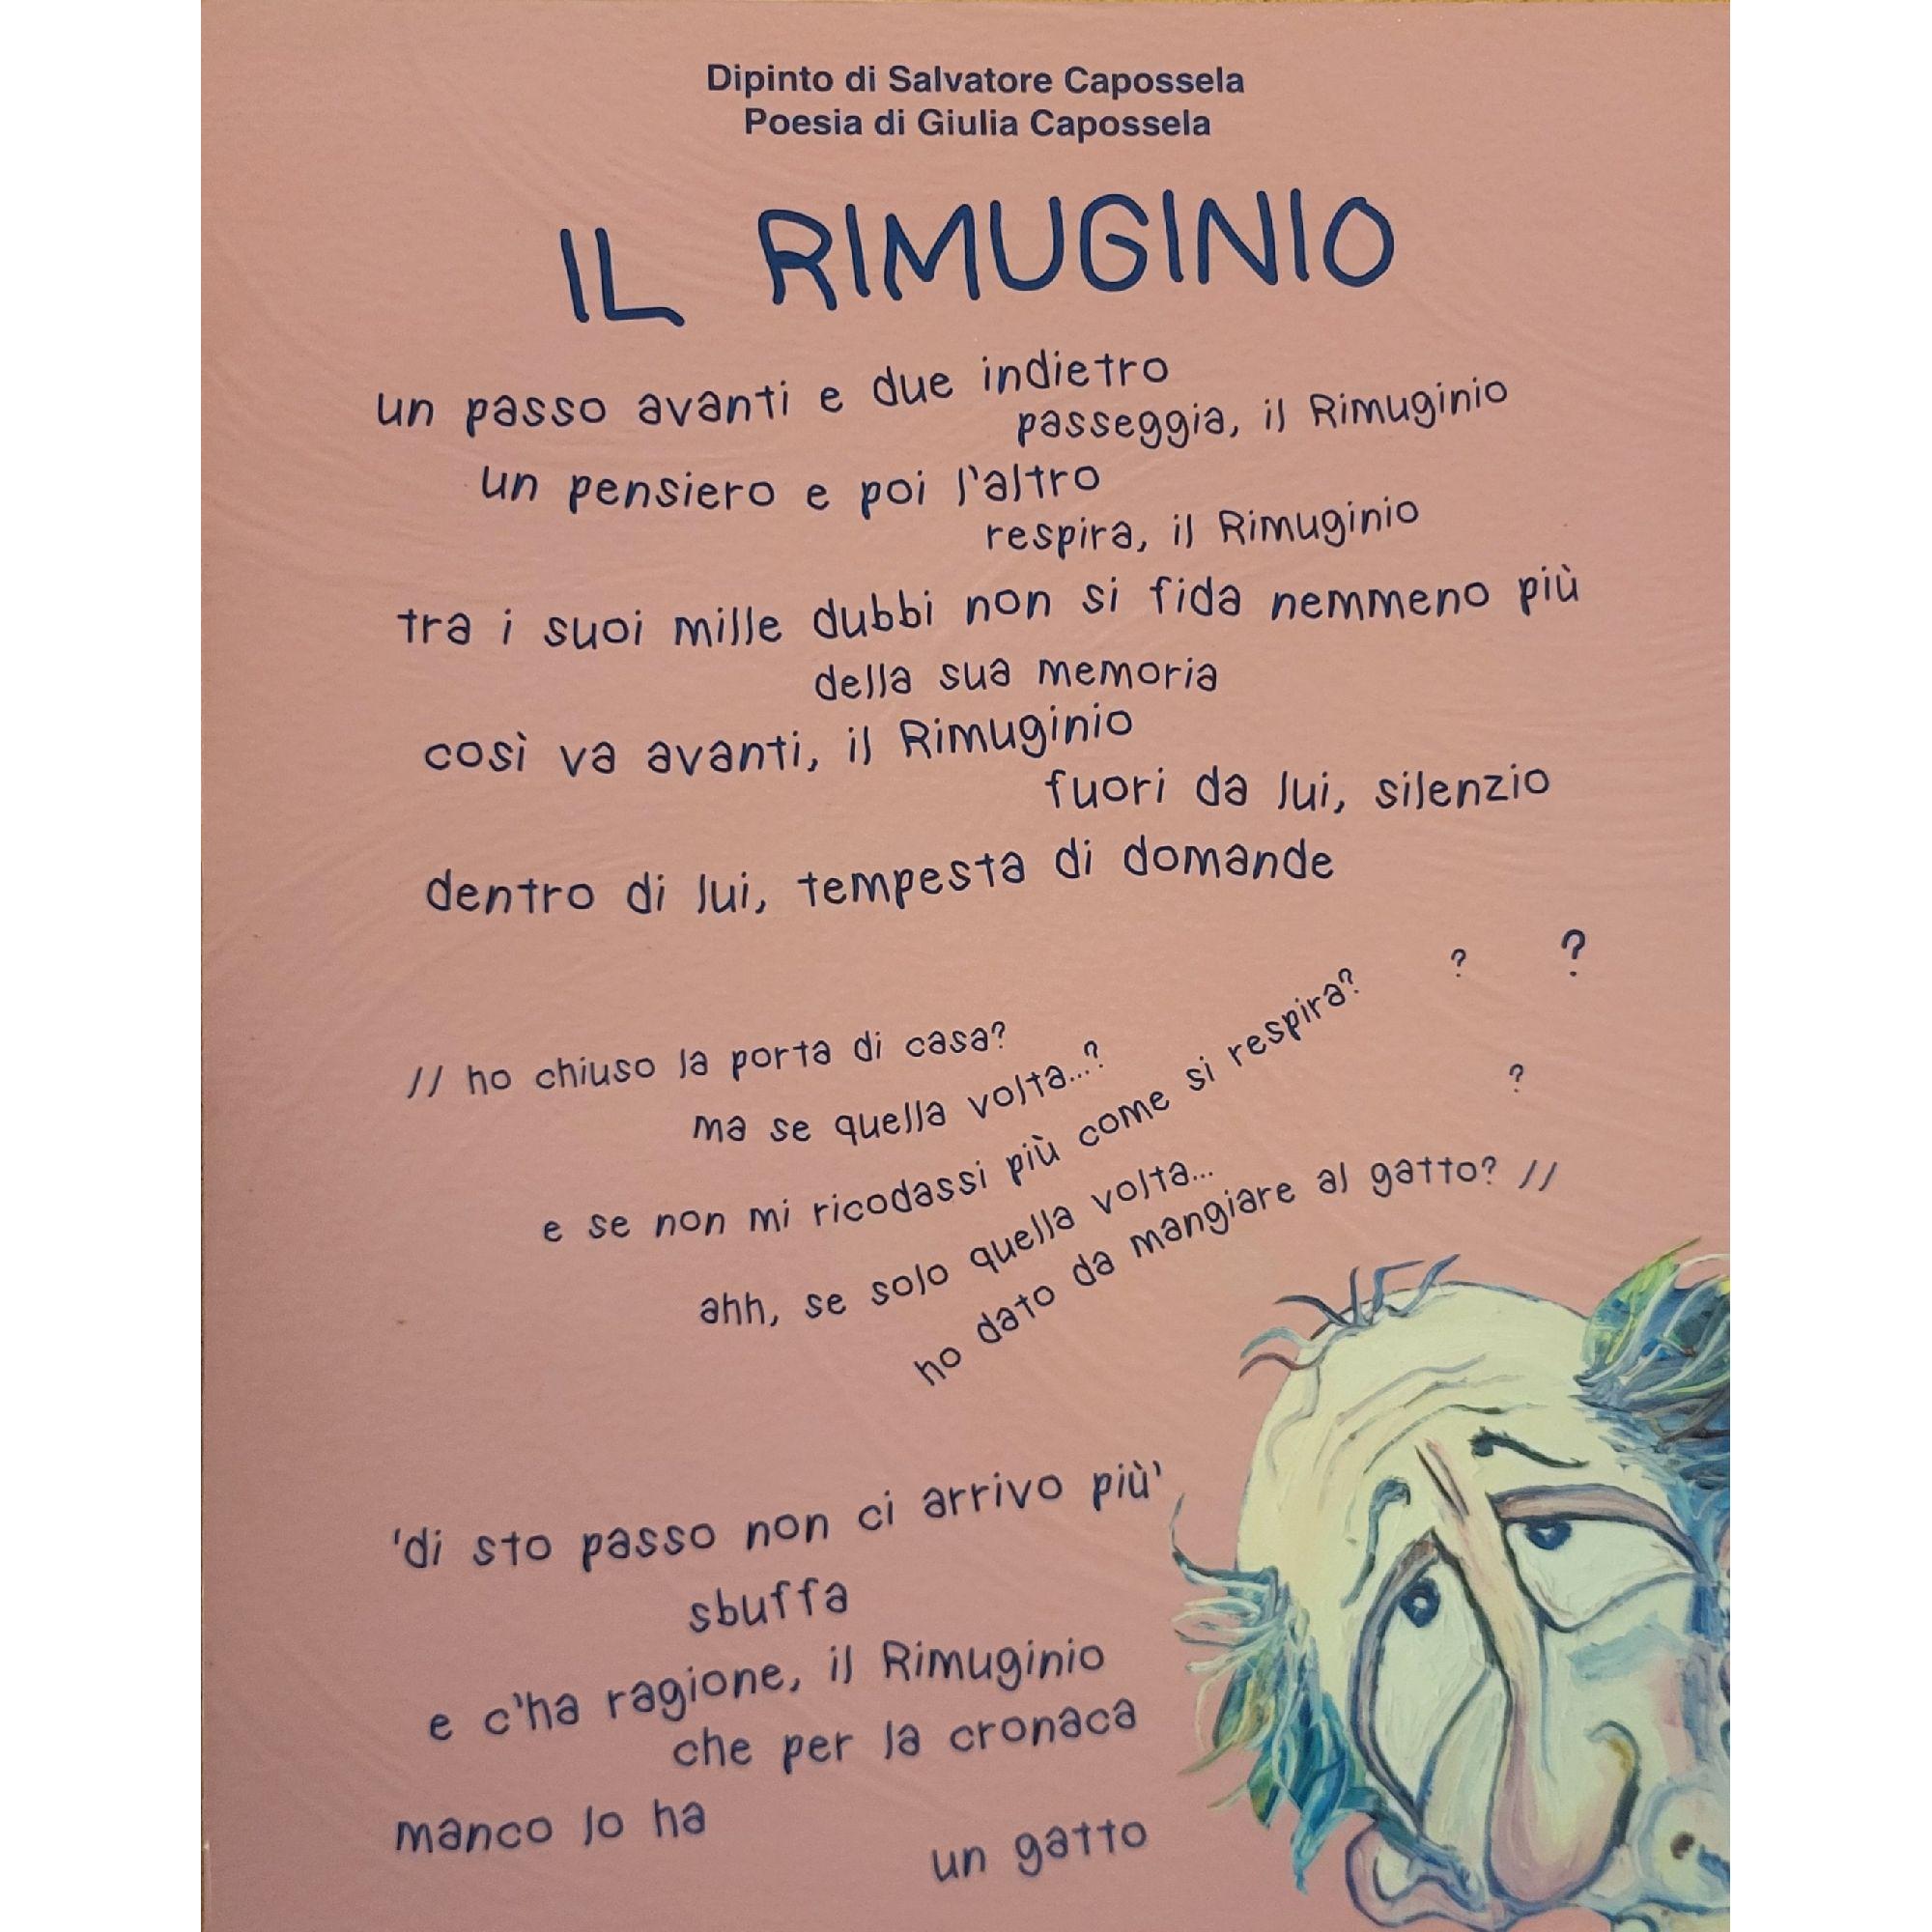 Dipinto di Salvatore Capossela
Poesia di Giulia Capossela
IL RIMUGINIO
un passo avanti e due indietro
passeggia, il Rimuginio
un pensiero e poi l'altro
respira, il Rimuginio
tra i suoi mille dubbi non si fida nemmeno più
della sua memoria
così va avanti, il Rimuginio
fuori da lui, silenzio
dentro di lui, tempesta di domande
? ?
// ho chiuso la porta di casa?
ma se quella volta...?
e se non mi ricodassi più come si respira?
?
ahh, se solo quella volta...
ho dato da mangiare al gatto? //
'di sto passo non ci arrivo più'
sbuffa
e c'ha ragione, il Rimuginio
che per la cronaca
manco lo ha
un gatto